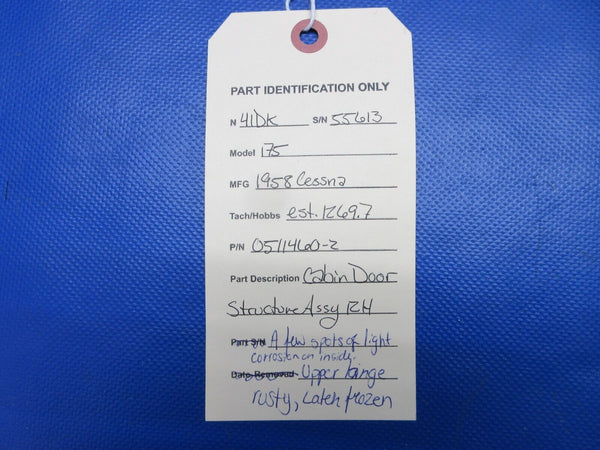 PART IDENTIFICATION ONLY
N 41DK S/N 55613
Model 175
MFG 1958 Cessna
Tach/Hobbs est. 1269.7
P/N 0511460-2
Part Description Cabin Door
Structure Assy RH
Part S/N A few spots of light
corrosion on inside.
Date Removed Upper hinge
rusty, Latch frozen